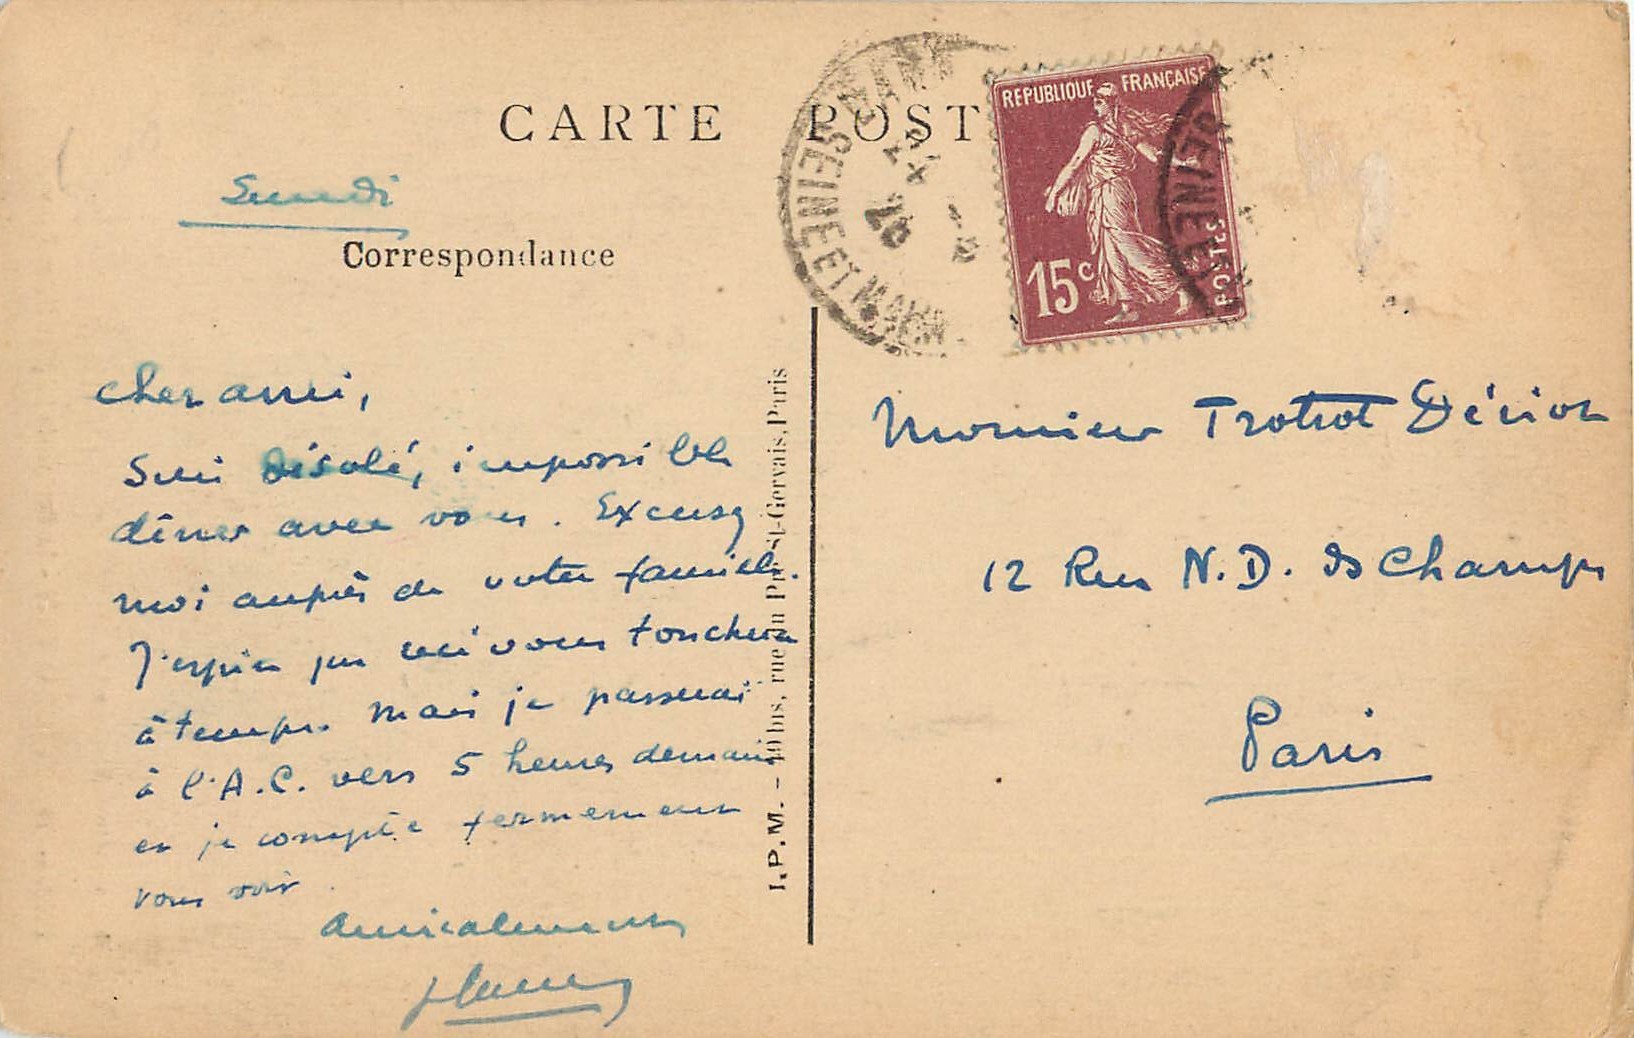 CARTE POST
Lundi
Correspondance
Cher ami,
Suis désolé, impossible
dîner avec vous. Excusez
moi auprès de votre famille.
J'espère que ceci vous touchera
à temps. Mais je passerai
à l'A.C. vers 5 heures demain
et je compte fermement
vous voir.
Amicalement
I.P.M. – 10 bis, rue du Pré-St-Gervais, Paris
SEINE ET MARNE
REPUBLIQUE FRANÇAISE
15c
POSTES
SEINE ET
Monsieur
12 Rue N.D. des Champs
Paris